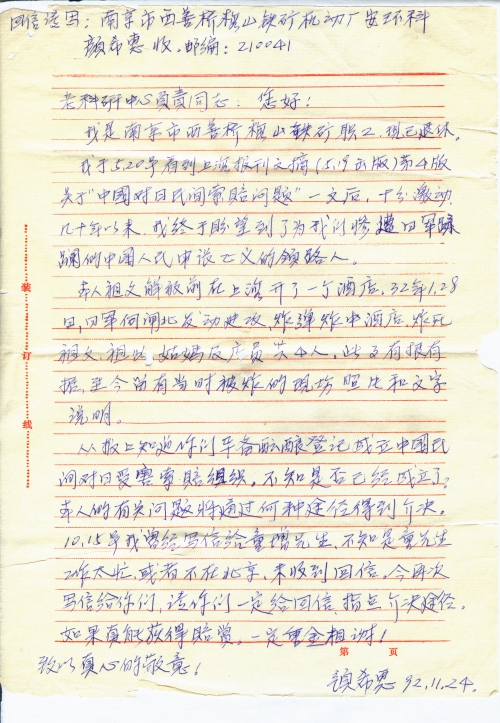 回信请写：南京市西善桥梅山铁矿机动厂安环科
顾希惠收．邮编：210041
老科研中心负责同志：您好！
我是南京市西善桥梅山铁矿职工，现已退休。
我于5.20号看到上海报刊文摘（5.19出版）第4版
关于"中國对日民间索赔问题"一文后，十分激动．
几十年以来，我终于盼望到了为我们惨遭日军蹂
躏的中國人民申张正义的领路人。
本人祖父解放前在上海开了一个酒店．32年1.28
日，日军向闸北发动进攻，炸弹炸中酒店，炸死
祖父、祖母、姑妈及店员共4人，此事有根有
据，至今留有当时被炸的现场照片和文字
说明。
从报上知道你们準备酝酿登记成立中國民
间对日受害索赔组织。不知是否已经成立了？
本人的有关问题将通过何种途径得到介决。
10.15号我曾经写信给童增先生，不知是童先生
工作太忙，或者不在北京，未收到回信。今再次
写信给你们，请你们一定给回信，指点介决途径。
如果真能获得赔赏，一定重金相谢！
致以真心的敬意！
顾希惠 92.11.24.
装
订
线
第 页